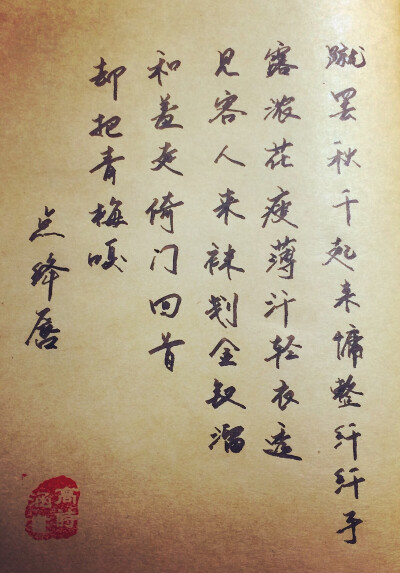 蹴罢秋千起来慵整纤纤手
露浓花瘦薄汗轻衣透
见客人来袜刬金钗溜
和羞走倚门回首
却把青梅嗅
点绛唇
高詩
涵書